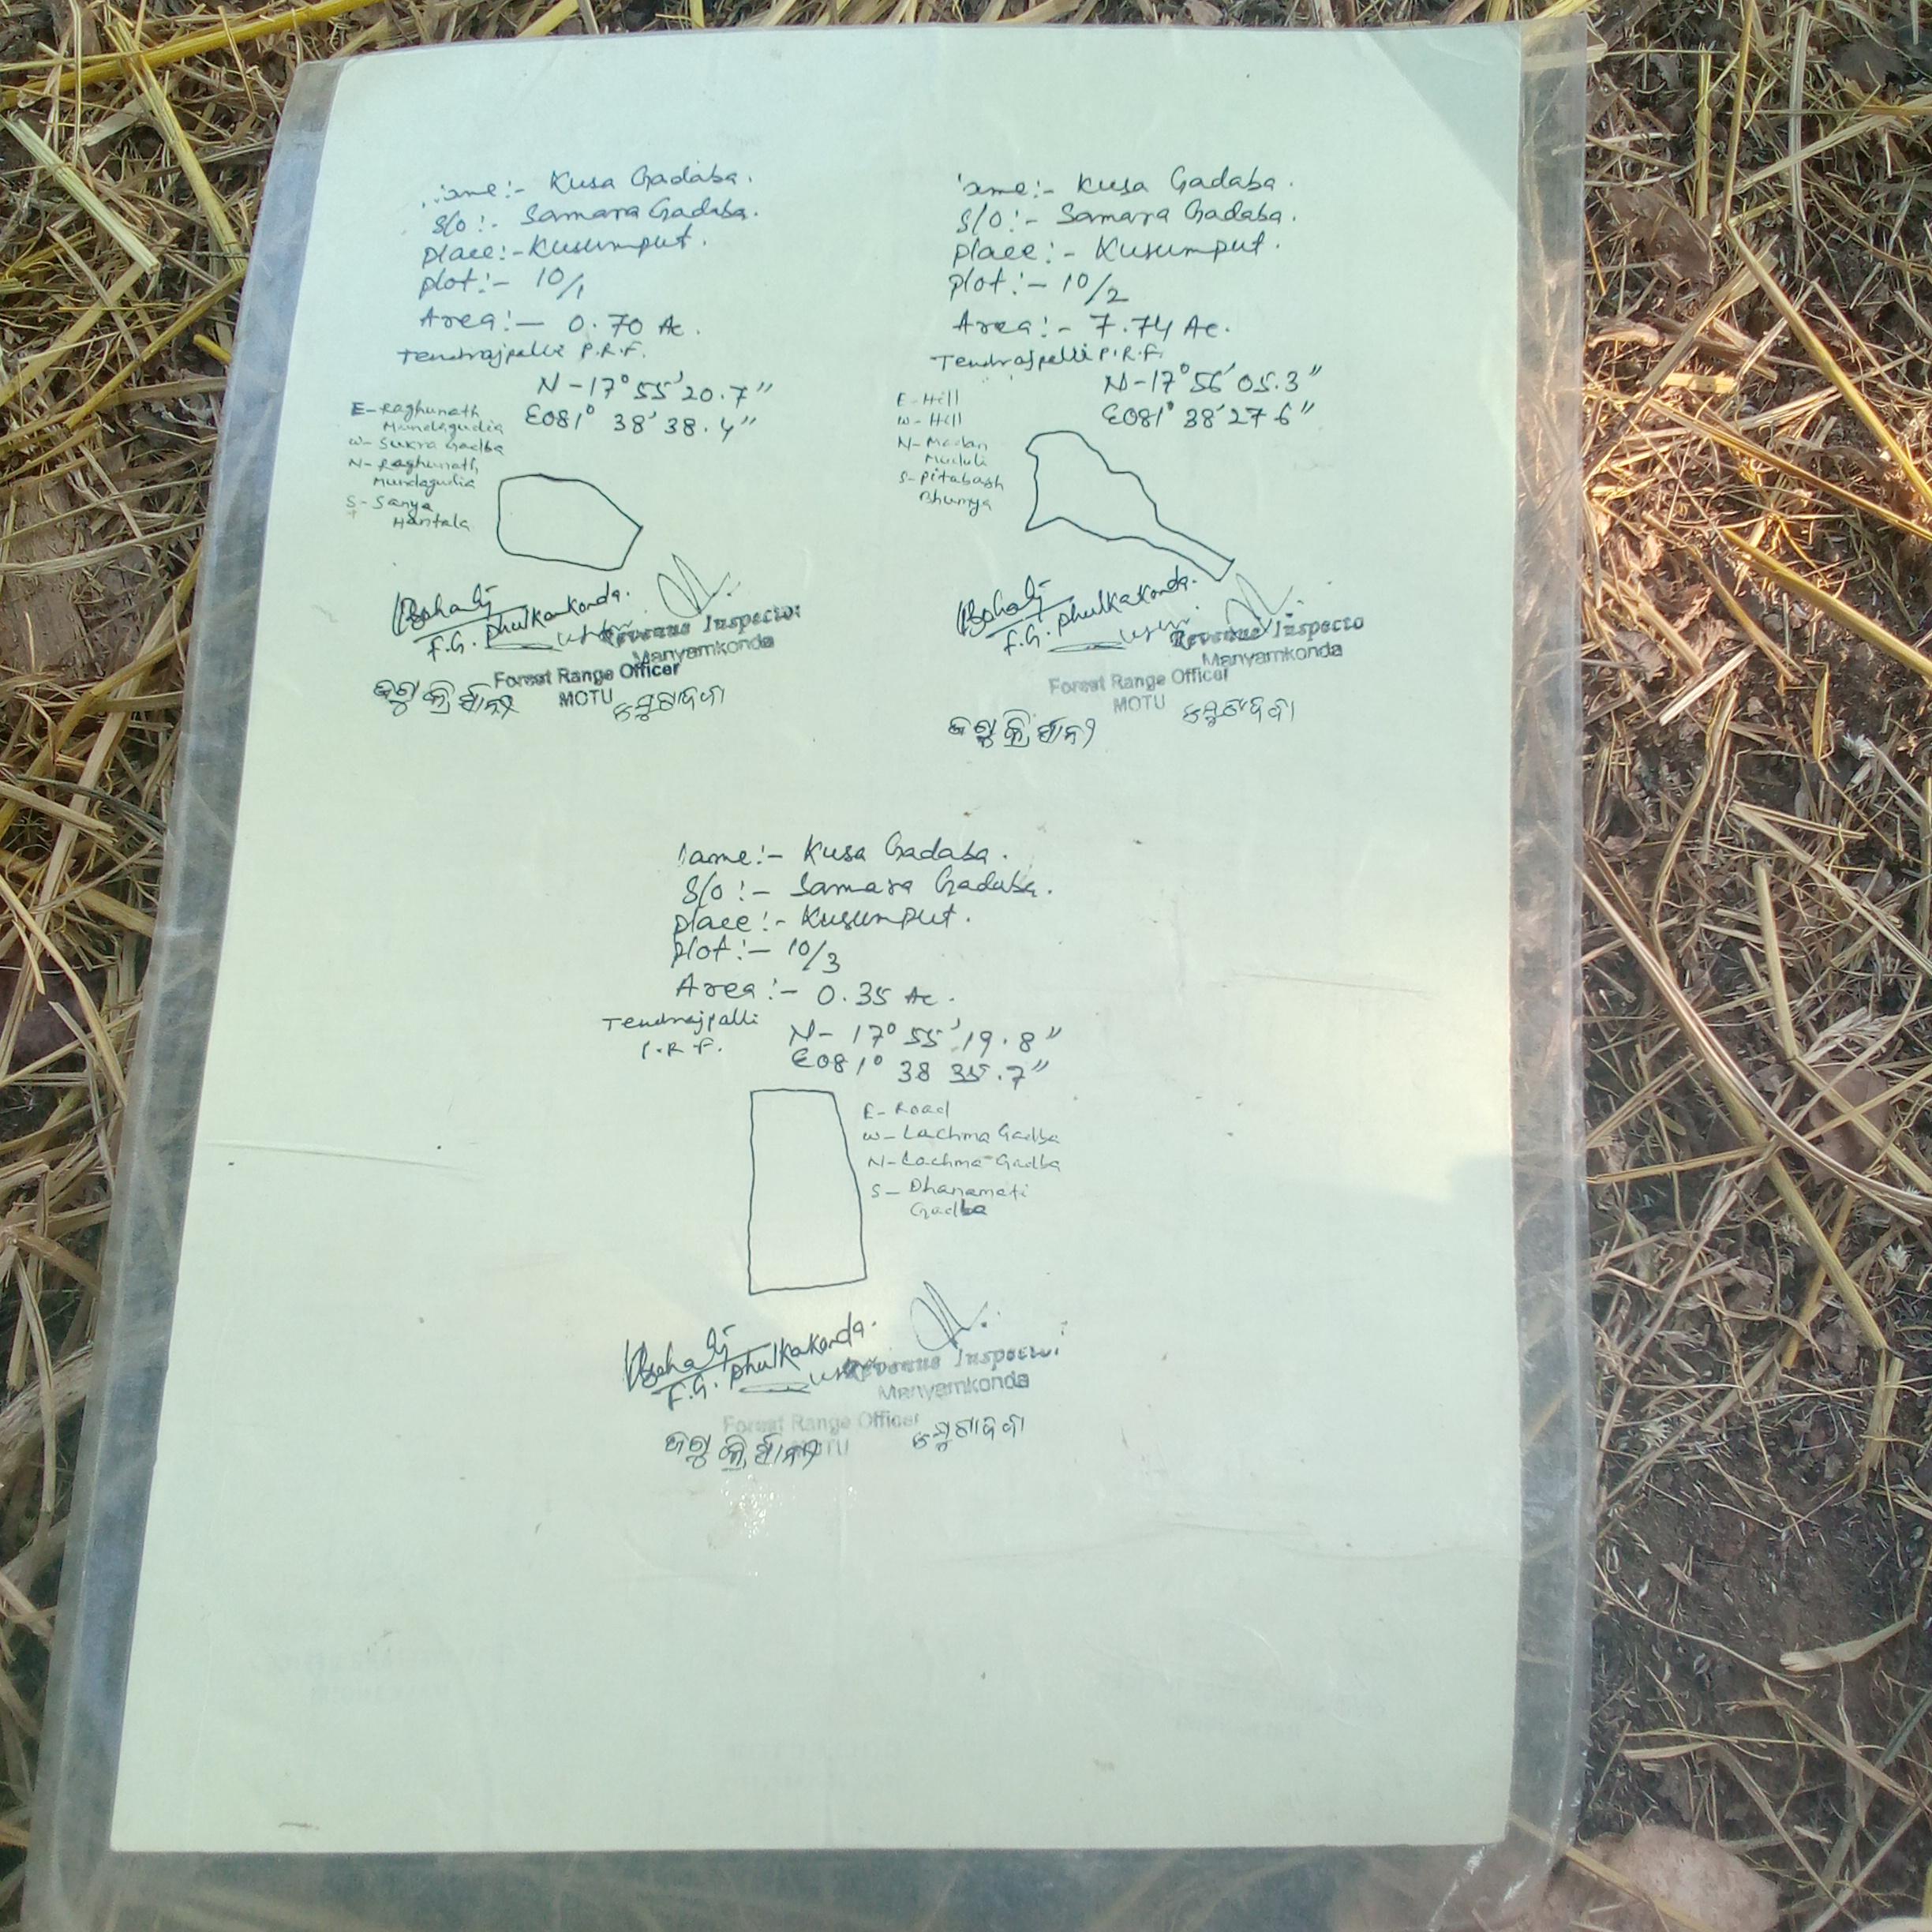 ame:- Kusa Gadaba.
S/o:- Samara Gadaba.
place:- Kusumput.
plot:- 10/1
Area:- 0.70 Ac.
Tendrajpalli P.R.F.
N-17° 55' 20.7"
E081° 38' 38.4"
E- Raghunath
Mundagudia
W- Sukra Gadba
N- Raghunath
Mundagudia
S- Sanya
Hantala
F.G. Phulkakonda.
Revenue Inspector
Manyamkonda
Forest Range Officer
MOTU
ame:- Kusa Gadaba.
S/o:- Samara Gadaba.
place:- Kusumput.
plot:- 10/2
Area:- 7.74 Ac.
Tendrajpalli P.R.F.
N-17° 56' 05.3"
E081° 38' 27 6"
E- Hill
W- Hill
N- Madan
Muduli
S- Pitabash
Bhumya
F.G. Phulkakonda.
Revenue Inspecto
Manyamkonda
Forest Range Officer
MOTU
ame:- Kusa Gadaba.
S/o:- Samara Gadaba.
place:- Kusumput.
plot:- 10/3
Area:- 0.35 Ac.
Tendrajpalli
P.R.F.
N- 17° 55' 19.8"
E081° 38 35.7"
E- Road
W- Lachma Gadba
N- Lachma Gadba
S- Dhanamati
Gadba
F.G. Phulkakonda.
Revenue Inspector
Manyamkonda
Forest Range Officer
MOTU